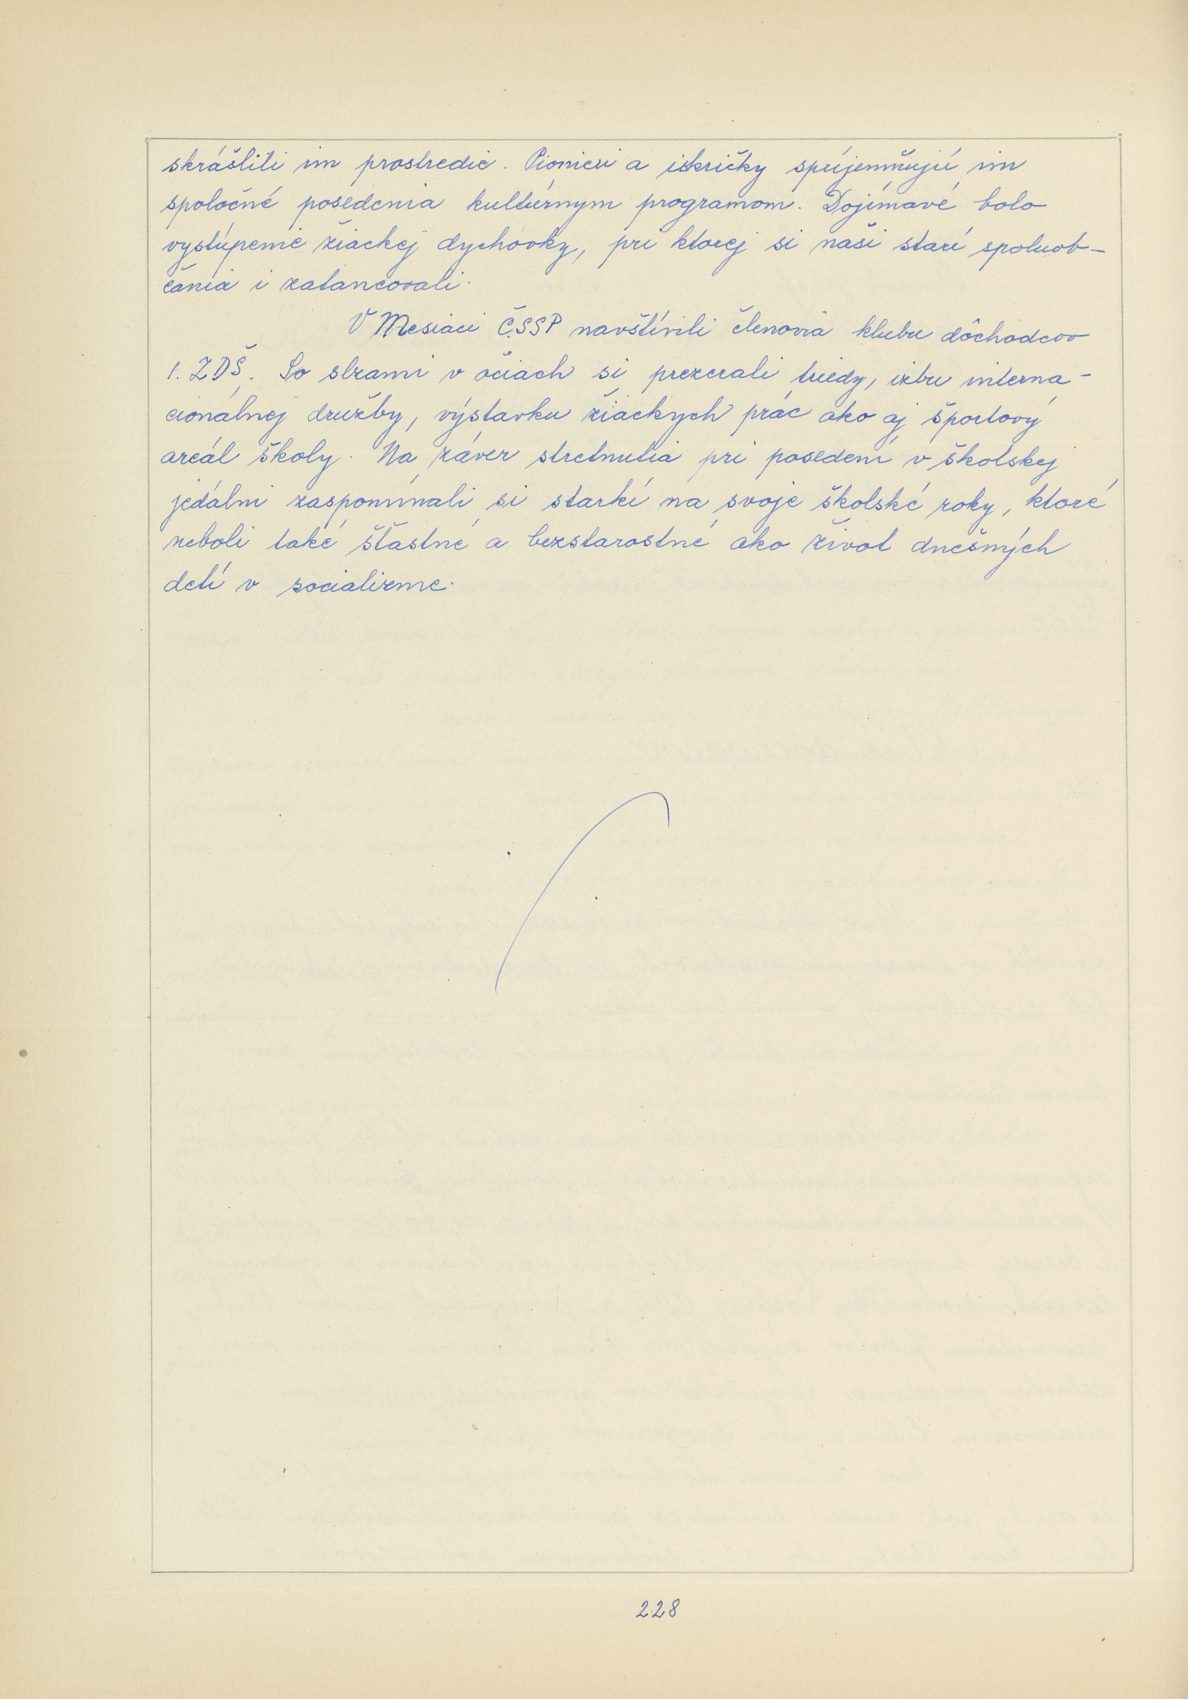 skrášlili im prostredie. Pionieri a iskričky spríjemňujú im
spoločné posedenia kultúrnym programom. Dojímavé bolo
vystúpenie žiackej dychovky, pri ktorej si naši starí spoluob-
čania i zatancovali.
V Mesiaci ČSSP navštívili členovia klubu dôchodcov
1. ZDŠ. So slzami v očiach si prezerali triedy, izbu interna-
cionálnej družby, výstavku žiackych prác ako aj športový
areál školy. Na záver stretnutia pri posedení v školskej
jedálni zaspomínali si starkí na svoje školské roky, ktoré
neboli také šťastné a bezstarostné ako život dnešných
detí v socializme.
228